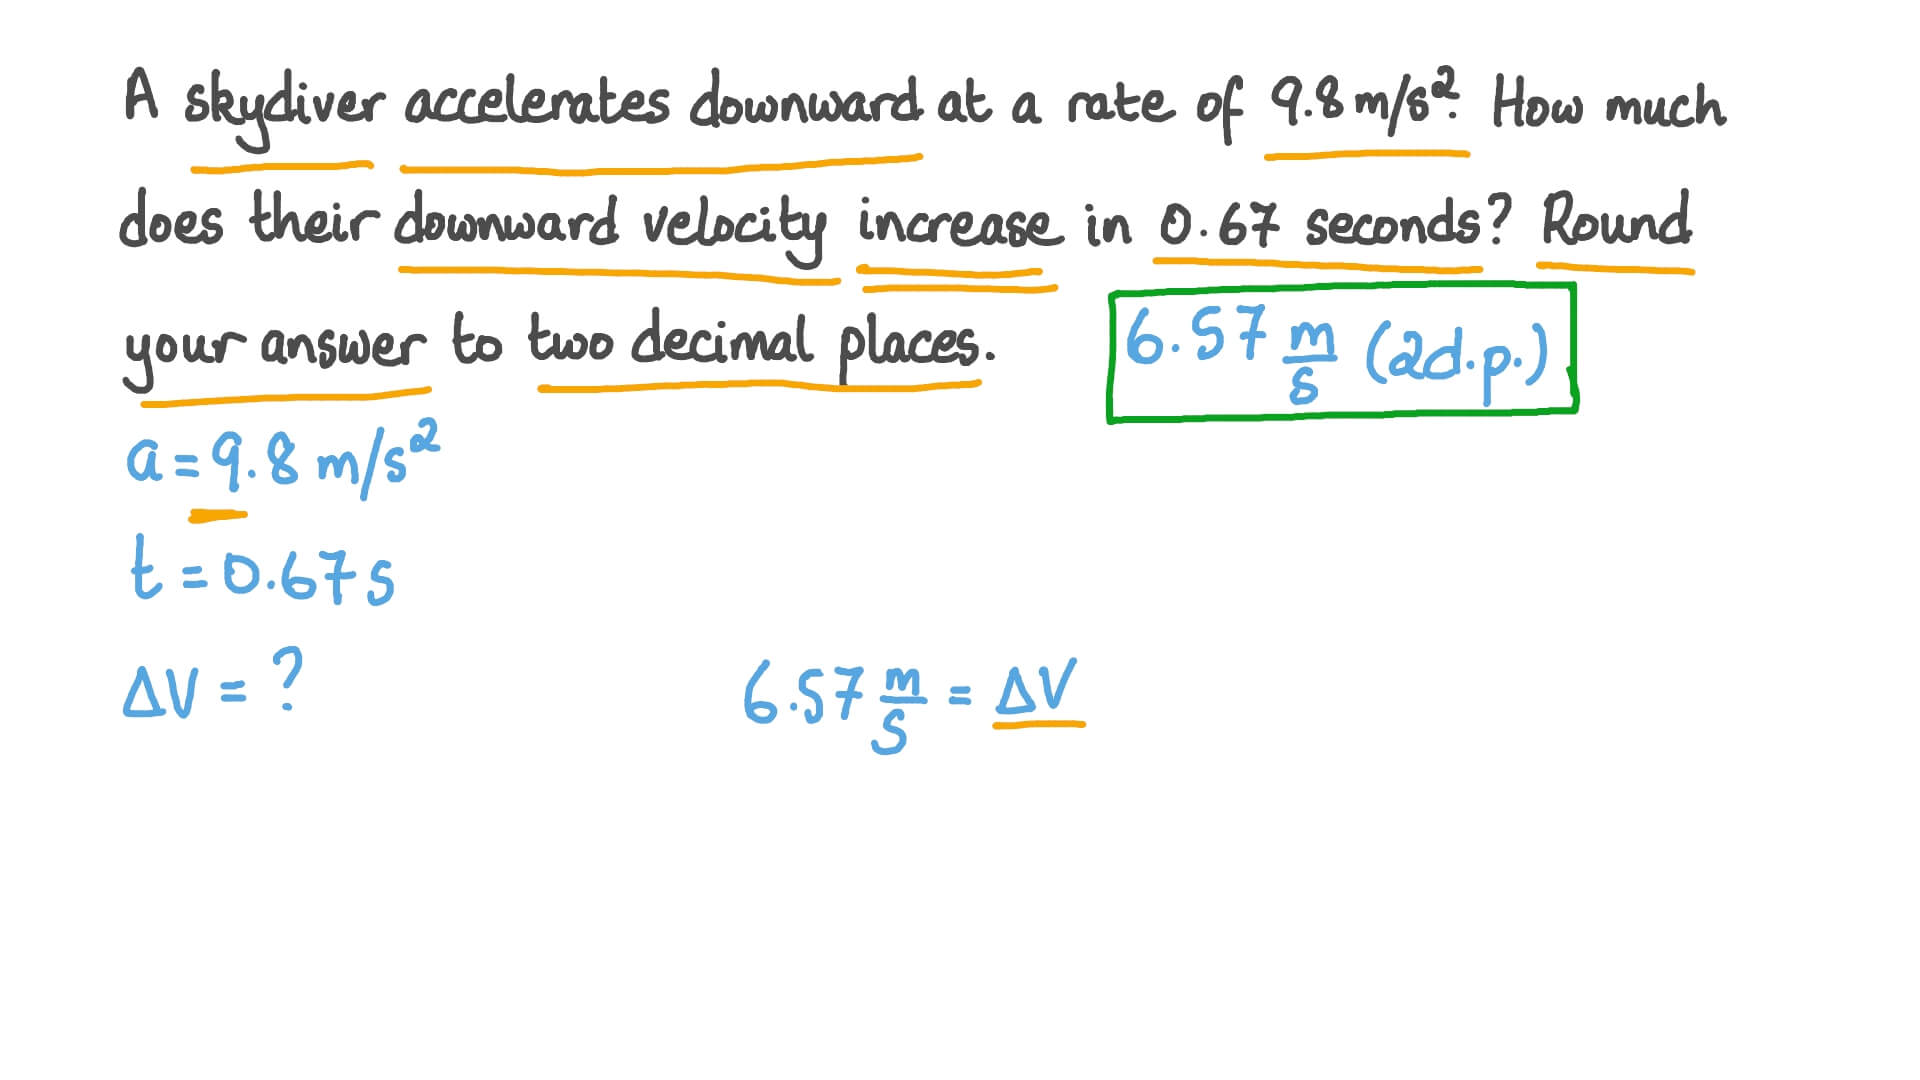 A skydiver accelerates downward at a rate of 9.8 m/s². How much
does their downward velocity increase in 0.67 seconds? Round
your answer to two decimal places.
6.57 m/s (2d.p.)
a = 9.8 m/s²
t = 0.67s
ΔV = ?
6.57 m/s = ΔV